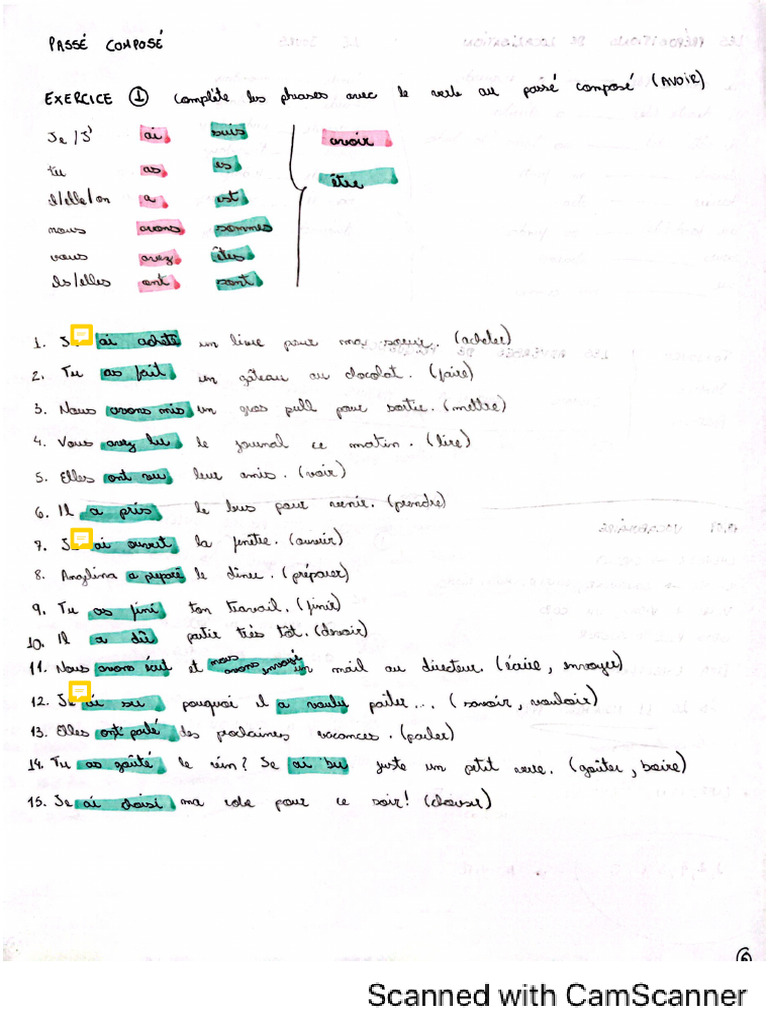 PASSÉ COMPOSÉ
EXERCICE ① complète les phrases avec le verbe au passé composé (AVOIR)
Je / J' ai suis avoir
tu as es être
il/elle/on a est
nous avons sommes
vous avez êtes
ils/elles ont sont
1. J ai acheté un livre pour ma soeur. (acheter)
2. Tu as fait un gâteau au chocolat. (faire)
3. Nous avons mis un gros pull pour sortir. (mettre)
4. Vous avez lu le journal ce matin. (lire)
5. Elles ont vu leur amis. (voir)
6. Il a pris le bus pour venir. (prendre)
7. J ai ouvert la fenêtre. (ouvrir)
8. Angelina a preparé le diner. (préparer)
9. Tu as fini ton travail. (finir)
10. Il a dû partir très tot. (devoir)
11. Nous avons écrit et nous avons envoyé un mail au directeur. (écrire, envoyer)
12. Je ai su pourquoi il a voulu parler... (savoir, vouloir)
13. Elles ont parlé des prochaines vacances. (parler)
14. Tu as goûté le vin? Je ai bu juste un petit verre. (goûter, boire)
15. Je ai choisi ma robe pour ce soir! (choisir)
6
Scanned with CamScanner